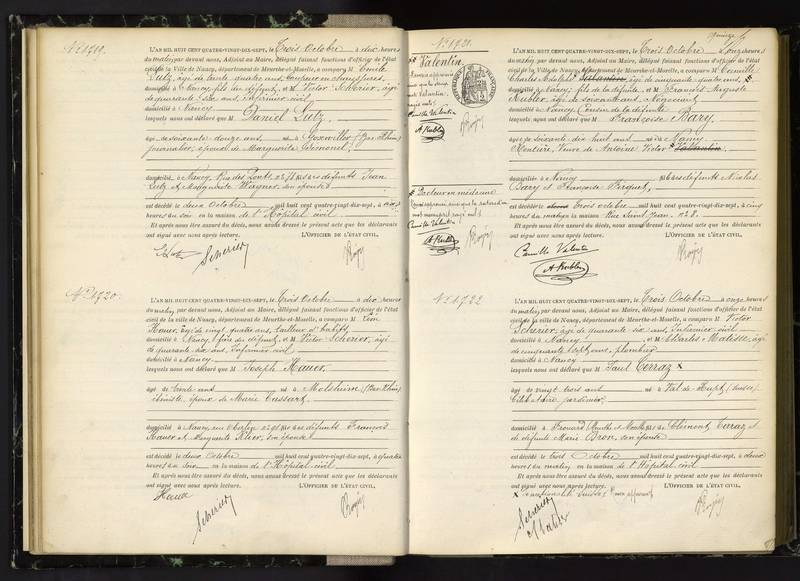 N° 1719.
L'AN MIL HUIT CENT QUATRE-VINGT-DIX-SEPT, le Trois Octobre à dix heures
du matin, par devant nous, Adjoint au Maire, délégué faisant fonctions d'officier de l'état
civil de la Ville de Nancy, département de Meurthe-et-Moselle, a comparu M Emile
Lutz, âgé de trente quatre ans, coupeur en chaussures,
domicilié à Nancy, fils du défunt, et M Victor Scherier, âgé
de quarante six ans, infirmier civil
domicilié à Nancy
lesquels nous ont déclaré que M Daniel Lutz
âgé de soixante douze ans né à Goxwiller (Bas-Rhin)
journalier, époux de Marguerite
domicilié à Nancy, Rue des Ponts, fils des défunts Jean
Lutz et Marguerite Wagner, son épouse
est décédé le deux Octobre mil huit cent quatre-vingt-dix-sept, à
heures du soir en la maison de l'Hôpital civil
Et après nous être assuré du décès, nous avons dressé le présent acte que les déclarants
ont signé avec nous après lecture. L'OFFICIER DE L'ÉTAT CIVIL,
Lutz Scherier
N° 1720.
L'AN MIL HUIT CENT QUATRE-VINGT-DIX-SEPT, le Trois Octobre à dix heures
du matin, par devant nous, Adjoint au Maire, délégué faisant fonctions d'officier de l'état
civil de la Ville de Nancy, département de Meurthe-et-Moselle, a comparu M
Hauer, âgé de vingt quatre ans, tailleur d'habits,
domicilié à Nancy, frère du défunt, et M Victor Scherier, âgé
de quarante six ans, infirmier civil
domicilié à Nancy
lesquels nous ont déclaré que M Joseph Hauer
âgé de trente ans né à Molsheim (Bas-Rhin)
ébéniste, époux de Marie Cussart
domicilié à Nancy, rue fils des défunts François
Hauer et Marguerite Klier, son épouse
est décédé le deux Octobre mil huit cent quatre-vingt-dix-sept, à quatre
heures du soir en la maison de l'Hôpital civil
Et après nous être assuré du décès, nous avons dressé le présent acte que les déclarants
ont signé avec nous après lecture. L'OFFICIER DE L'ÉTAT CIVIL,
Hauer
Scherier
N° 1721.
Valentin
Camille Valentin
A. Kubler
Docteur en médecine
Camille Valentin
A. Kubler
L'AN MIL HUIT CENT QUATRE-VINGT-DIX-SEPT, le Trois Octobre à onze heures
du matin, par devant nous, Adjoint au Maire, délégué faisant fonctions d'officier de l'état
civil de la Ville de Nancy, département de Meurthe-et-Moselle, a comparu M Camille
Charles Adolphe Vallantin, âgé de cinquante quatre ans,
domicilié à Nancy, fils de la défunte, et M François Auguste
Kubler, âgé de soixante ans, Négociant
domicilié à Nancy, Cousin de la défunte
lesquels nous ont déclaré que M Françoise Bary,
âgée de soixante dix huit ans née à Nancy
Rentière, Veuve de Antoine Victor Vallantin
domiciliée à Nancy fille des défunts Nicolas
Bary et Françoise Briquet,
est décédée le trois octobre mil huit cent quatre-vingt-dix-sept, à cinq
heures du matin en la maison Rue Saint Jean n° 8.
Et après nous être assuré du décès, nous avons dressé le présent acte que les déclarants
ont signé avec nous après lecture. L'OFFICIER DE L'ÉTAT CIVIL,
Camille Valentin
A. Kubler
N° 1722
L'AN MIL HUIT CENT QUATRE-VINGT-DIX-SEPT, le Trois Octobre à onze heures
du matin, par devant nous, Adjoint au Maire, délégué faisant fonctions d'officier de l'état
civil de la Ville de Nancy, département de Meurthe-et-Moselle, a comparu M Victor
Scherier, âgé de quarante six ans, Infirmier civil
domicilié à Nancy et M Charles Matisse, âgé
de cinquante sept ans, plombier
domicilié à Nancy
lesquels nous ont déclaré que M Paul Cerraz x
âgé de vingt trois ans né à Val de (Suisse)
Célibataire, jardinier,
domicilié à Frouard (Meurthe et Moselle) fils de Clément Cerraz et
de défunte Marie Bron, son épouse
est décédé le trois Octobre mil huit cent quatre-vingt-dix-sept, à deux
heures du matin en la maison de l'Hôpital civil
Et après nous être assuré du décès, nous avons dressé le présent acte que les déclarants
ont signé avec nous après lecture. L'OFFICIER DE L'ÉTAT CIVIL,
x nationalité Suisse
Scherier